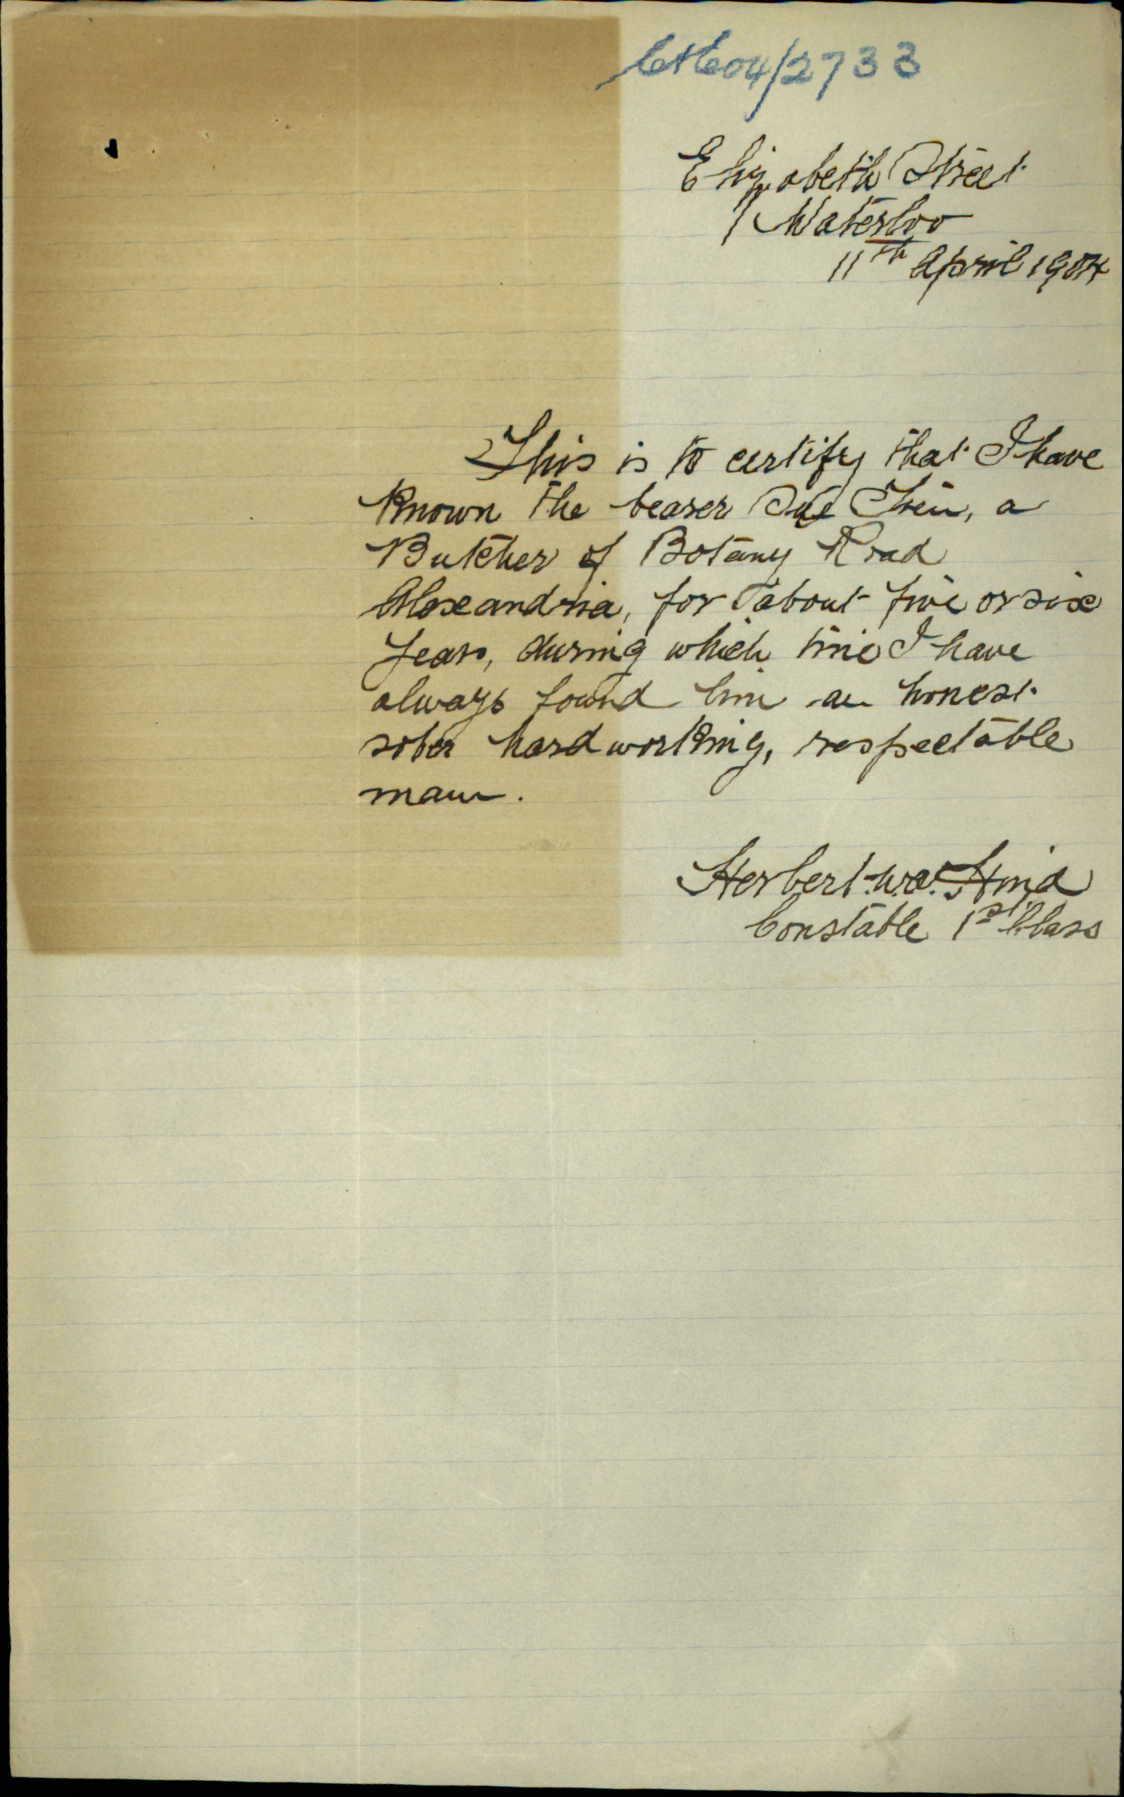 C&E04/2733
Elizabeth Street
Waterloo
11th April 1904
This is to certify that I have
known the bearer Sue Thin, a
Butcher of Botany Road
Alexandria, for about five or six
years, during which time I have
always found him an honest
sober hardworking, respectable
man.
Herbert Hind
Constable 1st Class